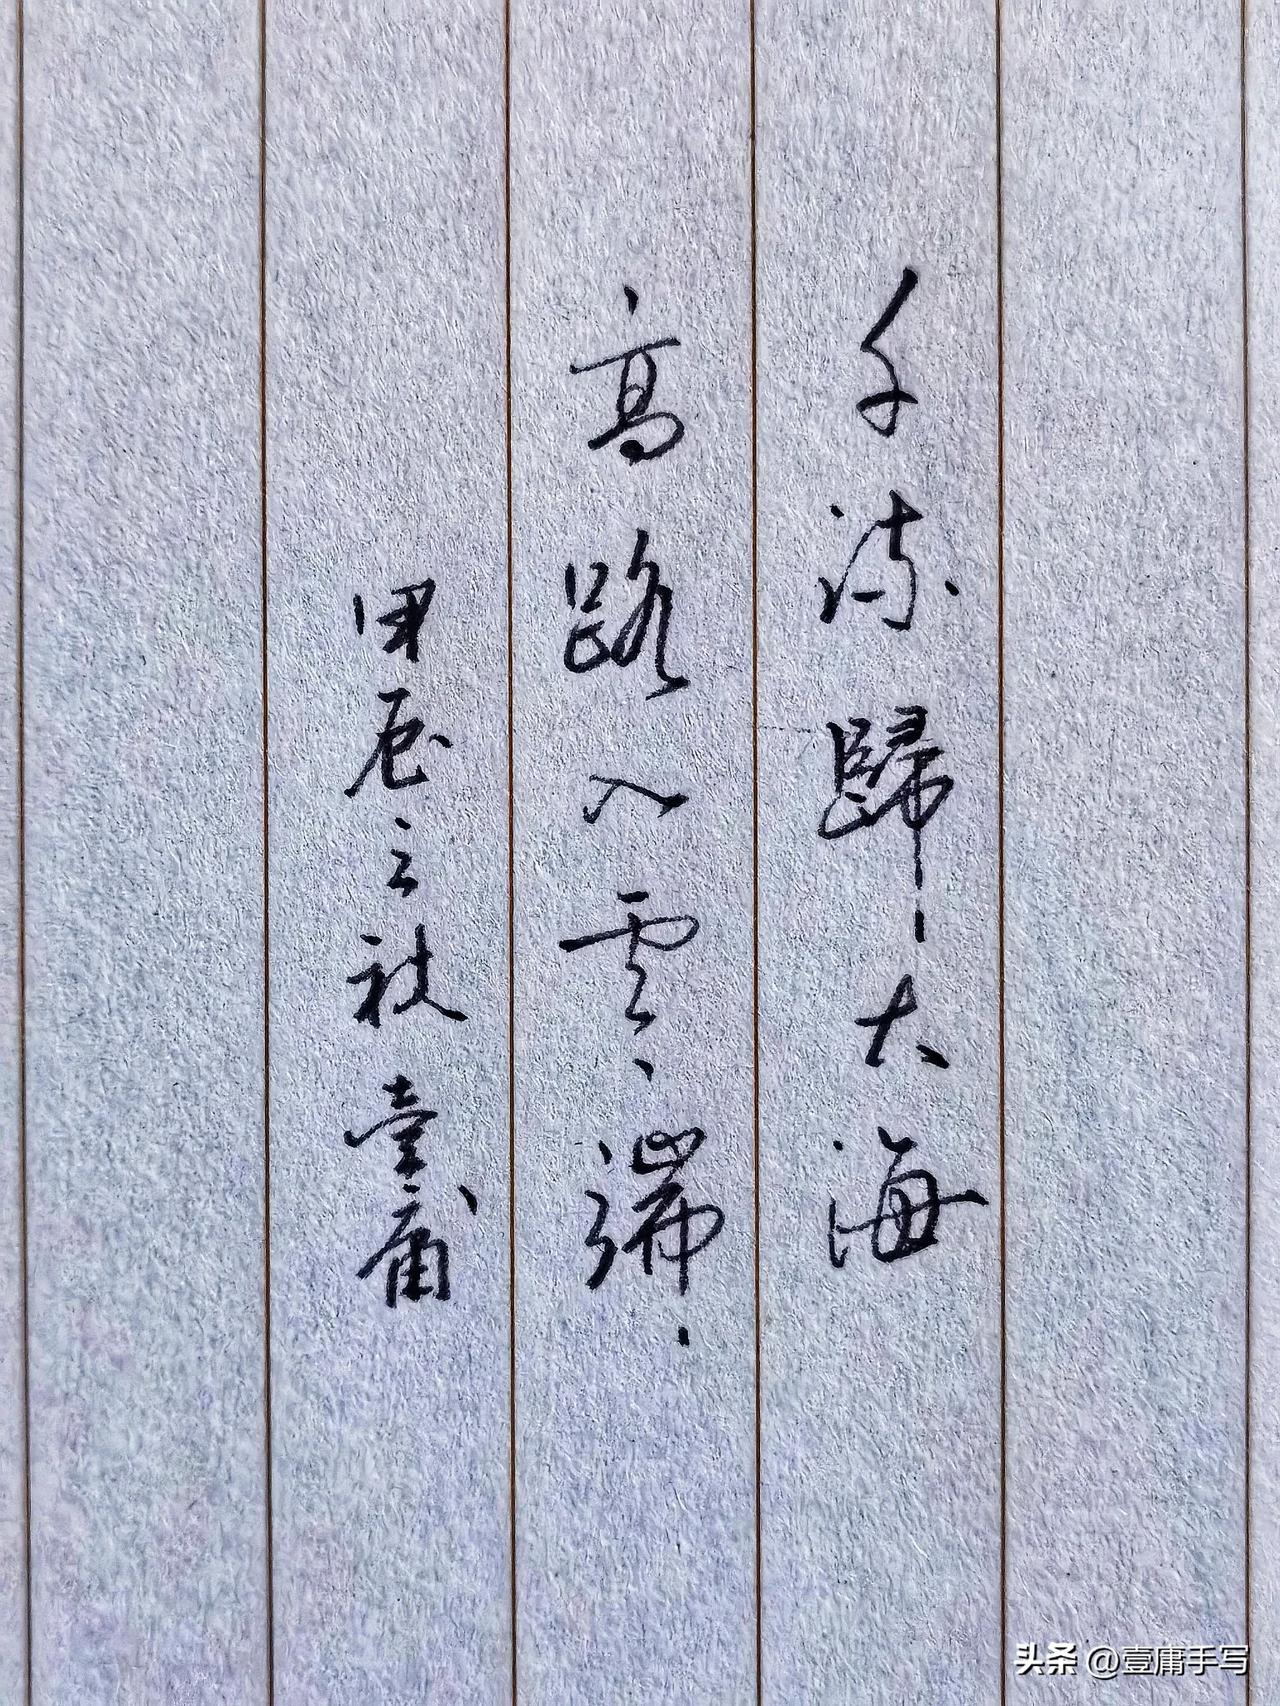 千流歸大海
高路入雲端
甲辰之秋 壹庸
头条 @壹庸手写